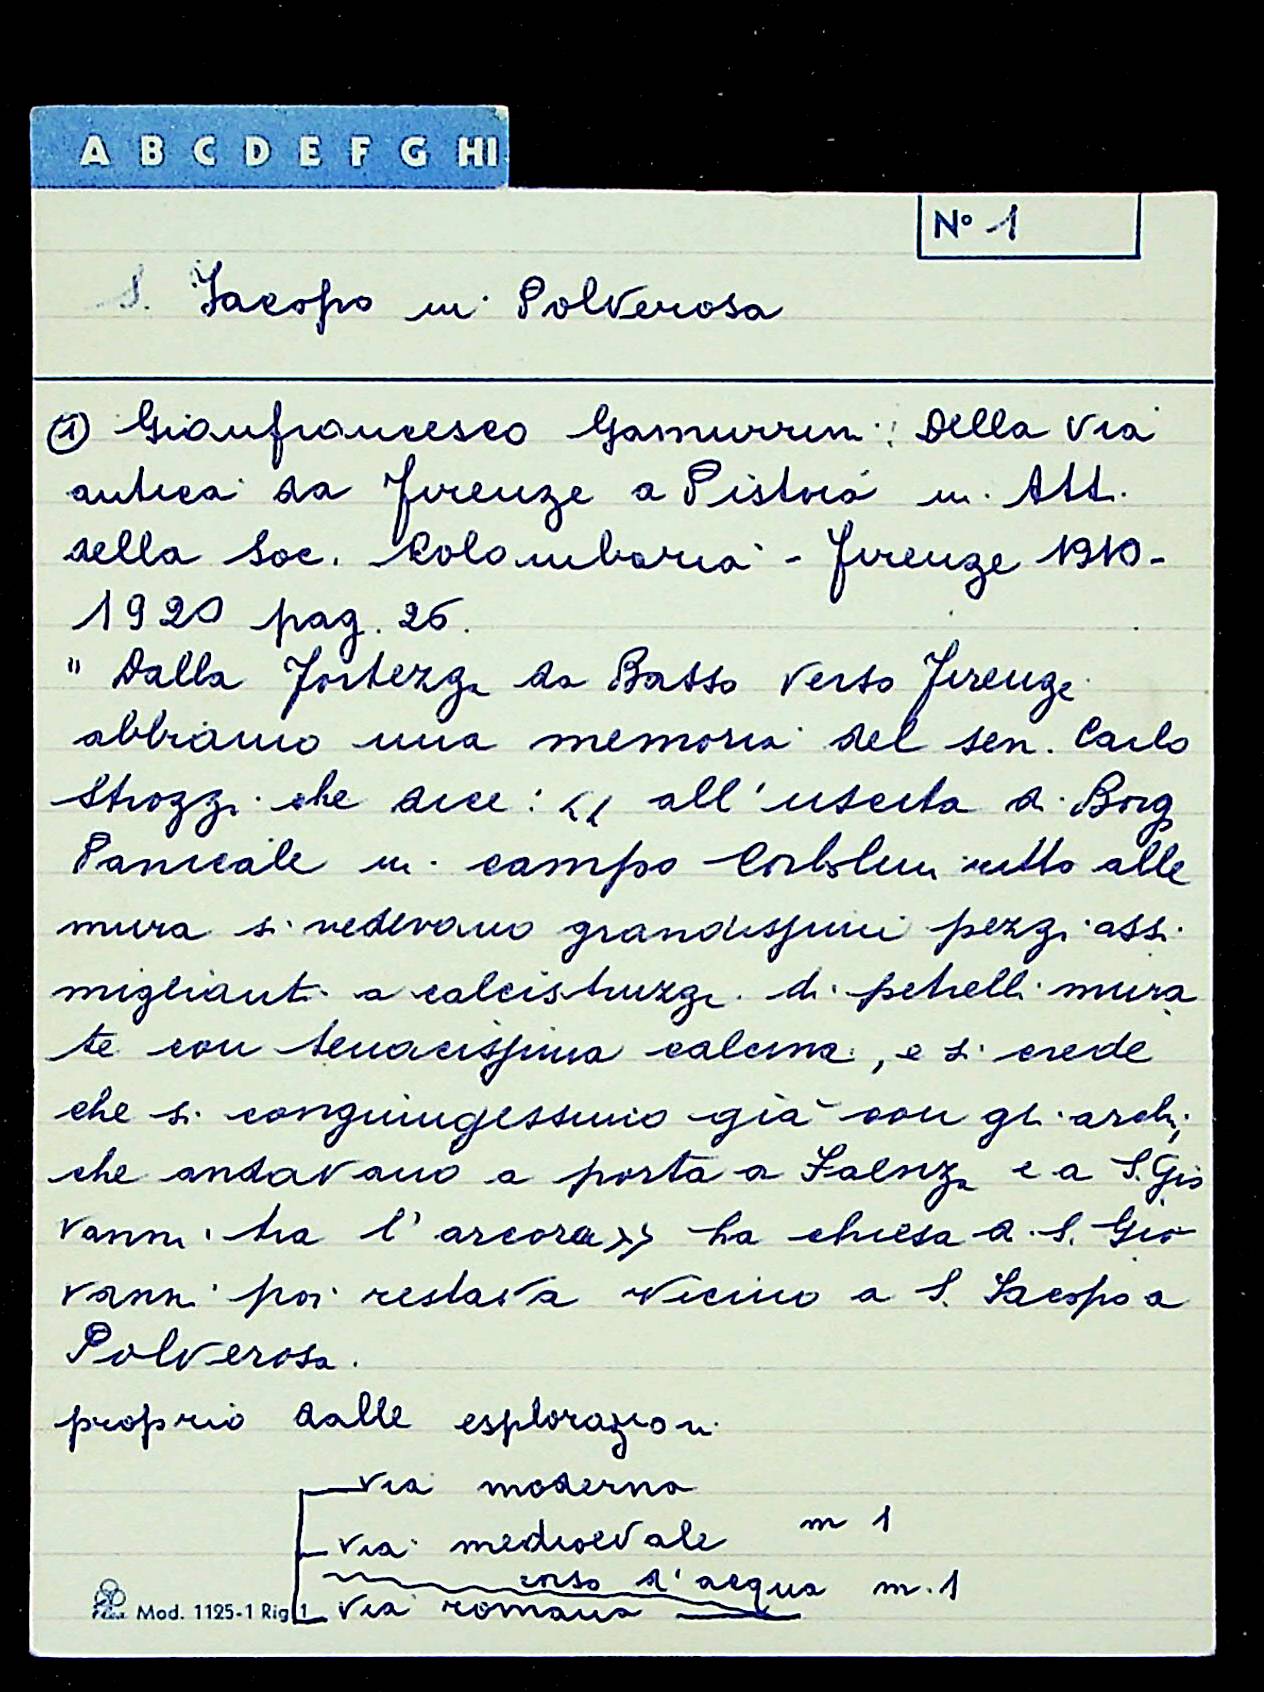 A B C D E F G HI
N° 1
S. Jacopo in Polverosa
① Gianfrancesco Gamurrini: Della via
antica da Firenze a Pistoia in Atti
della Soc. Colombaria - Firenze 1910-
1920 pag. 26.
" Dalla Fortezza da Basso verso Firenze
abbiamo una memoria del sen. Carlo
Strozzi che dice: << all'uscita di Borg
Panicale in campo Corbolini sotto alle
mura si vedevano grandissimi pezzi assi
miglianti a calcistruzzi di petrelli mura
te con tenacissima calcina, e si crede
che si conguingessino già con gli archi,
che andavano a porta a Faenza e a S. Gio
vanni tra l'arcora >> la chiesa di S. Gio
vanni poi restava vicino a S. Jacopo a
Polverosa.
proprio dalle esplorazioni
via moderna
m 1
via medioevale
corso d'acqua m. 1
via romana
Mod. 1125-1 Rig. 1